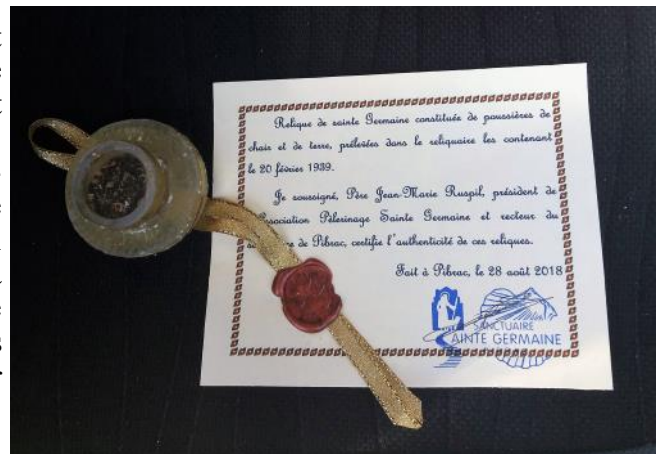 Relique de sainte Germaine constituée de poussières de
chair et de terre, prélevées dans le reliquaire les contenant
le 20 février 1939.
Je soussigné, Père Jean-Marie Ruspil, président de
Association Pèlerinage Sainte Germaine et recteur du
de Pibrac, certifie l'authenticité de ces reliques.
Fait à Pibrac, le 28 août 2018
SANCTUAIRE
AINTE GERMAINE